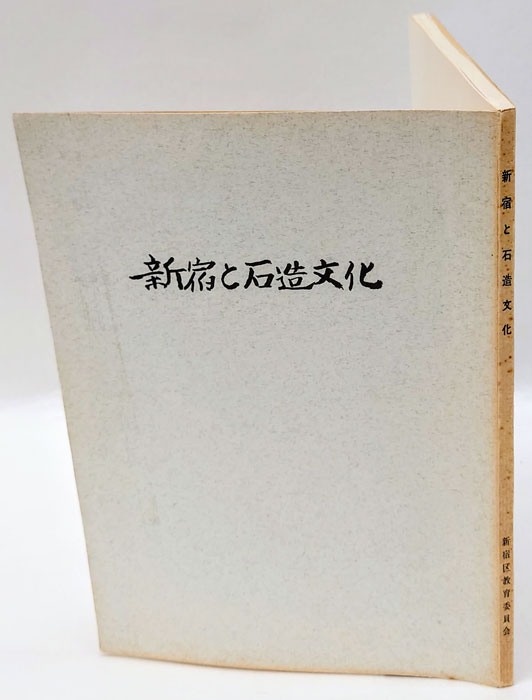 新宿と石造文化
新宿と石造文化
新宿区教育委員会